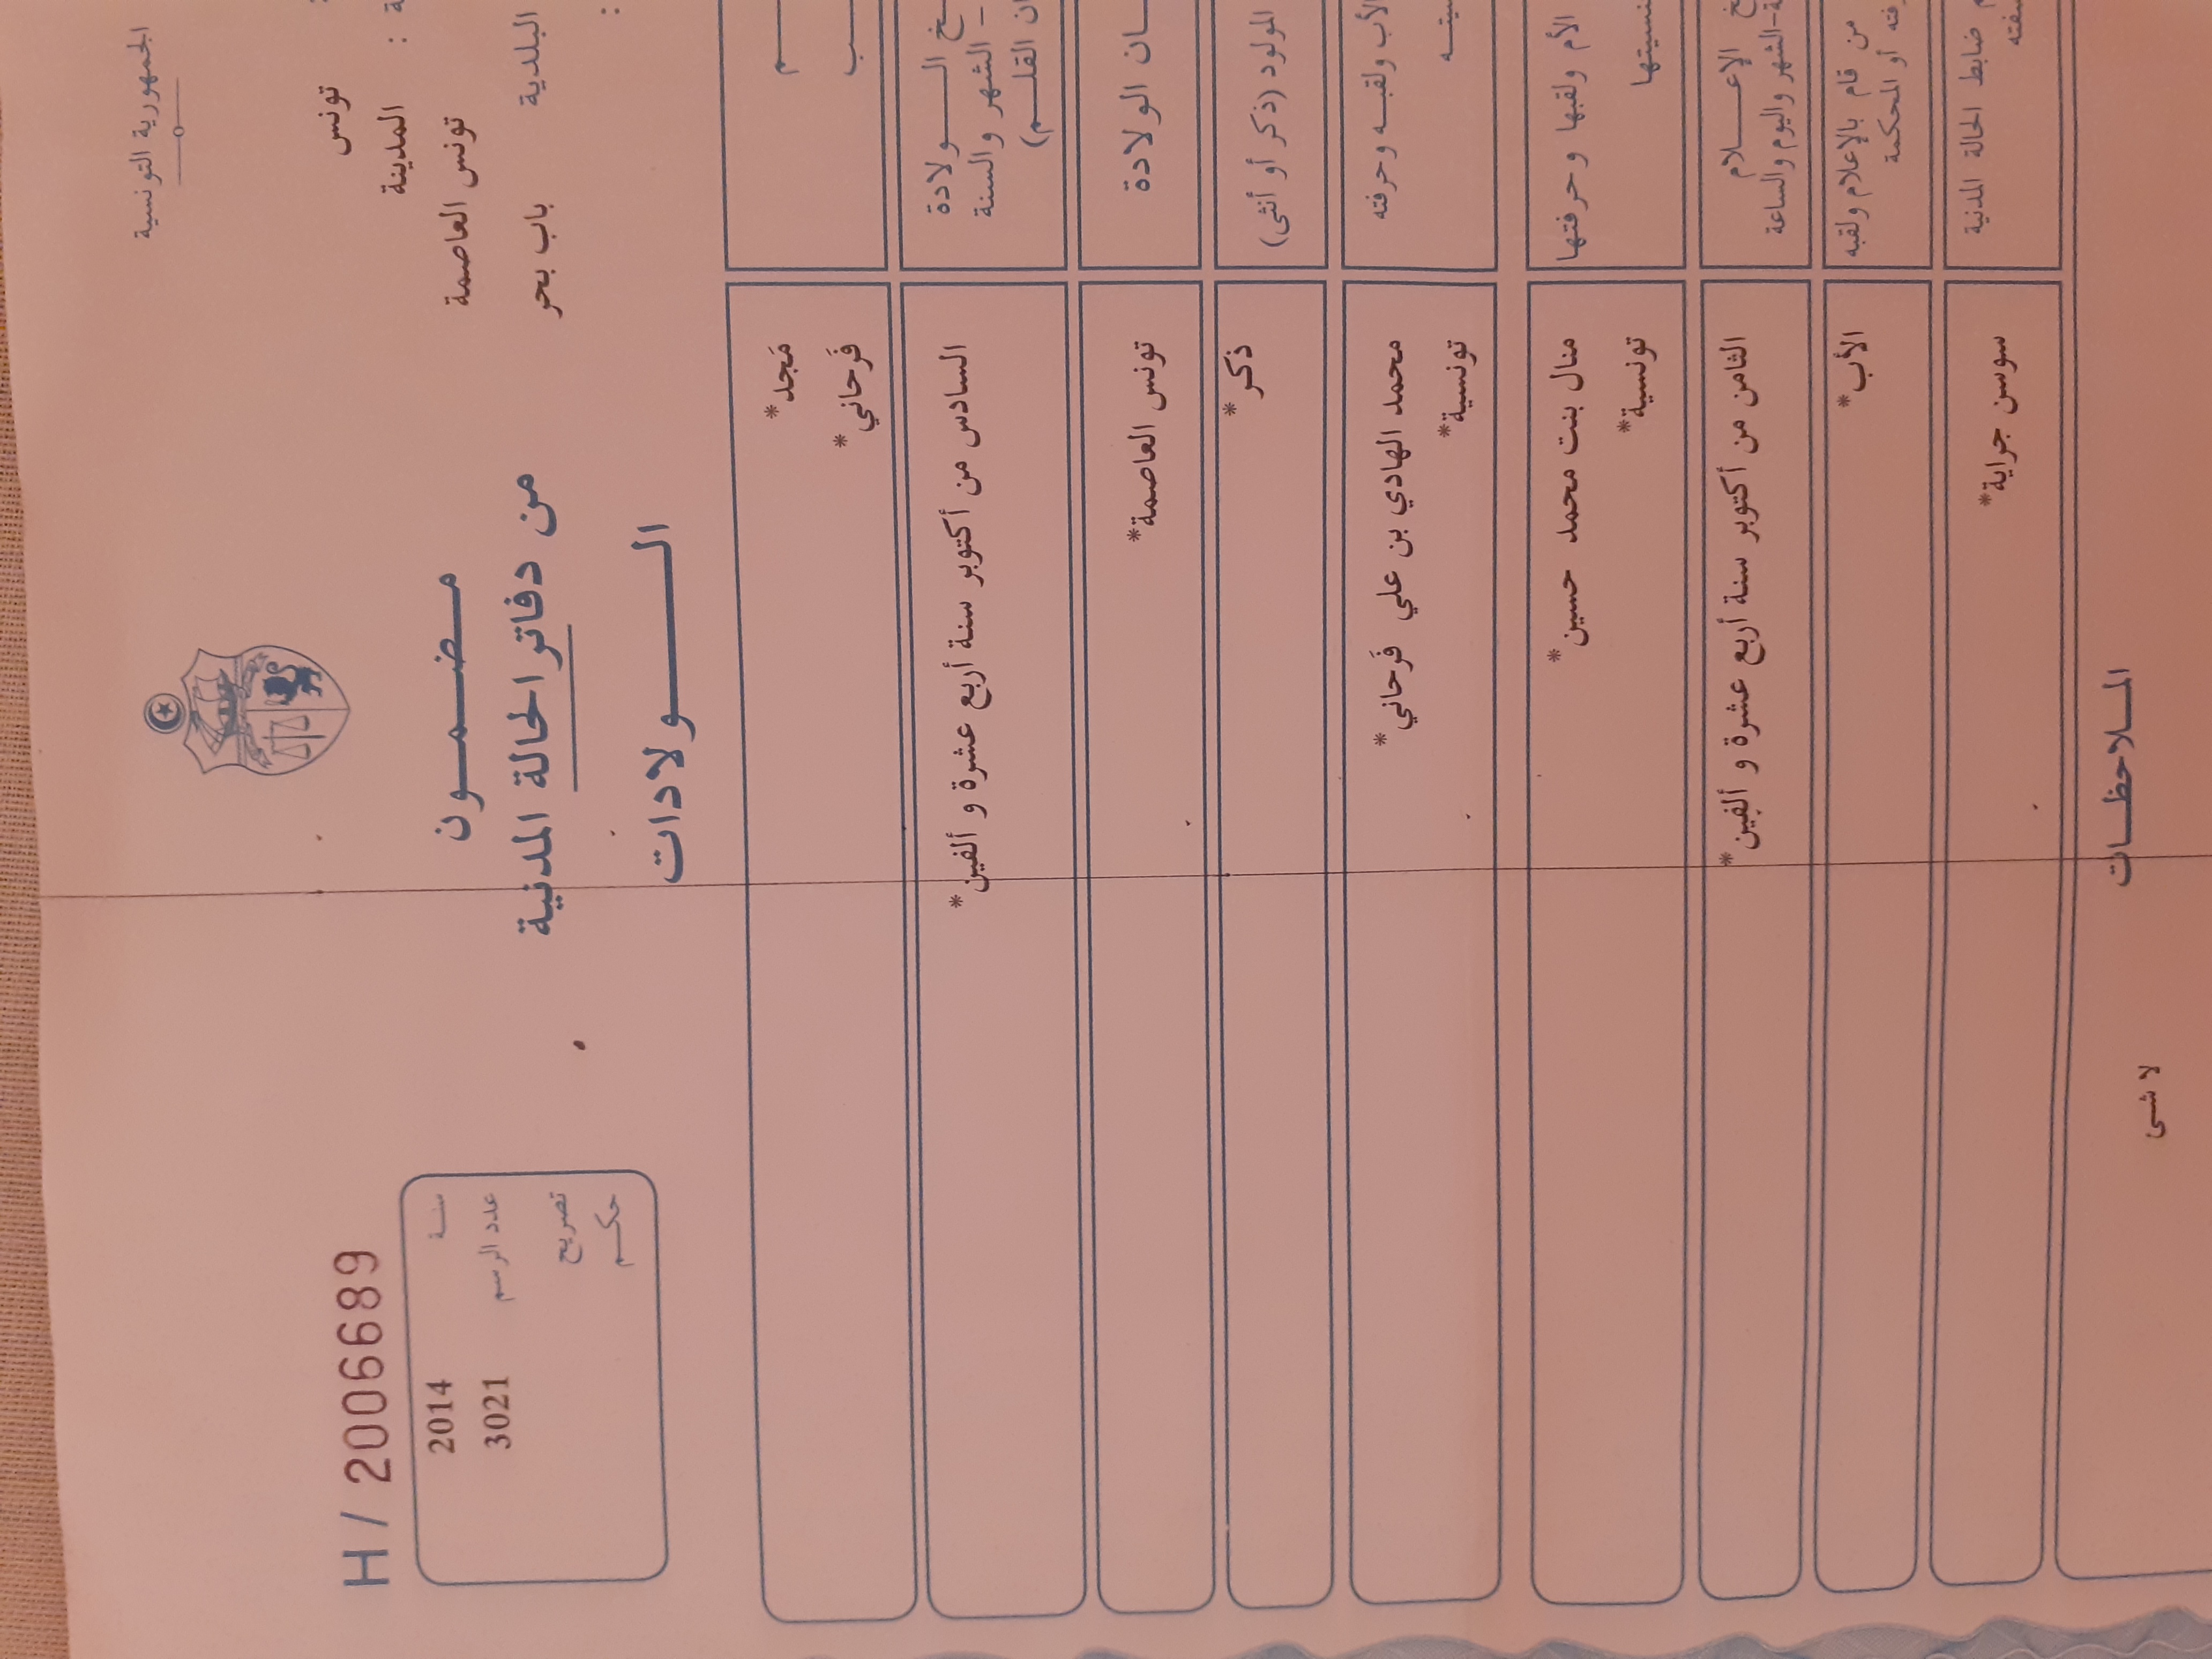 الجمهورية التونسية
H / 2006689
تونس
المدينة :
تونس العاصمة
البلدية باب بحر
مضمون
من دفاتر الحالة المدنية
الولادات
سنة 2014
عدد الرسم 3021
تصريح
حكم
مَجد*
فَرحاني*
الولادة
الشهر والسنة
القلم)
السادس من أكتوبر سنة أربع عشرة و ألفين*
الولادة
تونس العاصمة*
المولود (ذكر أو أنثى)
ذكر*
الأب ولقبه وحرفته
محمد الهادي بن علي فَرحاني*
تونسية*
الأم ولقبها وحرفتها
منال بنت محمد حسين*
تونسية*
الإعلام
الشهر واليوم والساعة
الثامن من أكتوبر سنة أربع عشرة و ألفين*
من قام بالإعلام ولقبه
أو المحكمة
الأب*
ضابط الحالة المدنية
سوسن جراية*
الملاحظات
لا شى